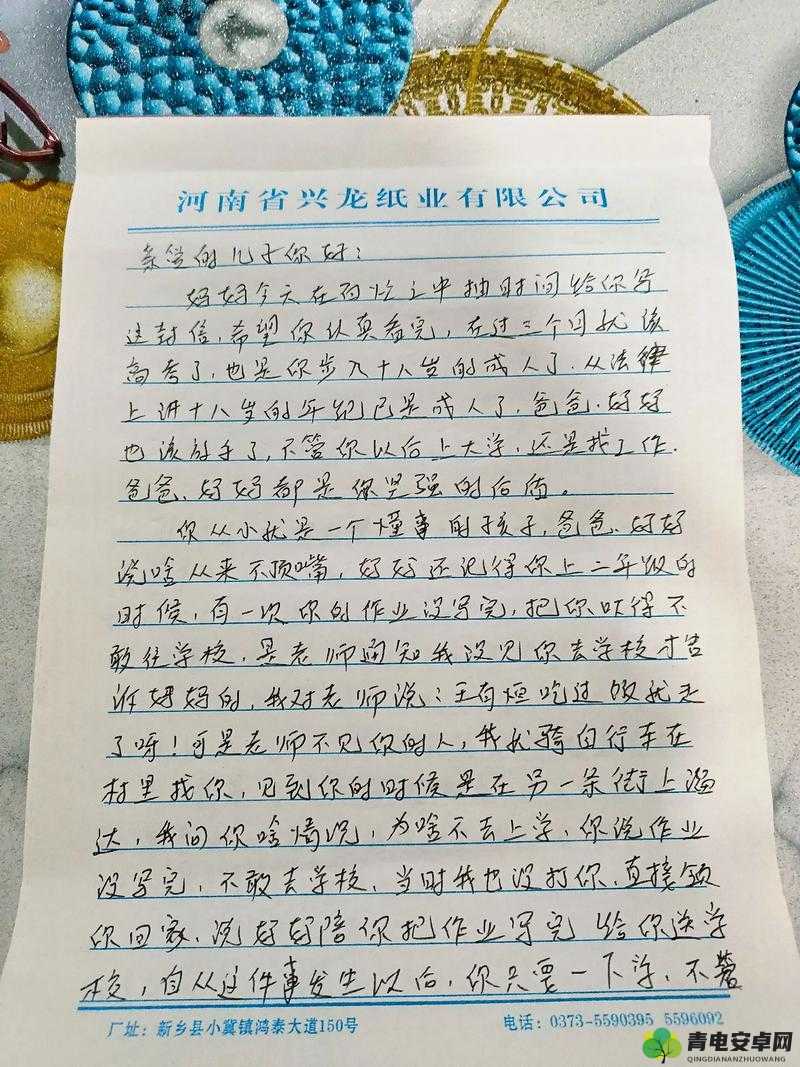 河南省兴龙纸业有限公司
亲爱的儿子你好：
妈妈今天在百忙之中抽时间给你写
这封信，希望你认真看完，在过三个月就该
高考了，也是你步入十八岁的成人了.从法律
上讲十八岁的年纪已是成人了，爸爸.妈妈
也该放手了，不管你以后上大学，还是找工作.
爸爸、妈妈都是你坚强的后盾。
你从小就是一个懂事的孩子，爸爸、妈妈
说啥从来不顶嘴，妈妈还记得你上二年级的
时候，有一次你的作业没写完，把你吓得不
敢往学校，是老师通知我没见你去学校才告
诉妈妈的，我对老师说：王有恒吃过饭就走
了呀！可是老师不见你的人，我就骑自行车在
村里找你，见到你的时候是在另一条街上溜
达，我问你啥情况，为啥不去上学，你说作业
没写完，不敢去学校，当时我也没打你，直接领
你回家，说妈妈陪你把作业写完给你送学
校，自从这件事发生以后，你只要一下学，不管
厂址：新乡县小冀镇鸿泰大道150号
电话：0373-5590395 5596092
青电安卓网
QINGDIANANZHUOWANG